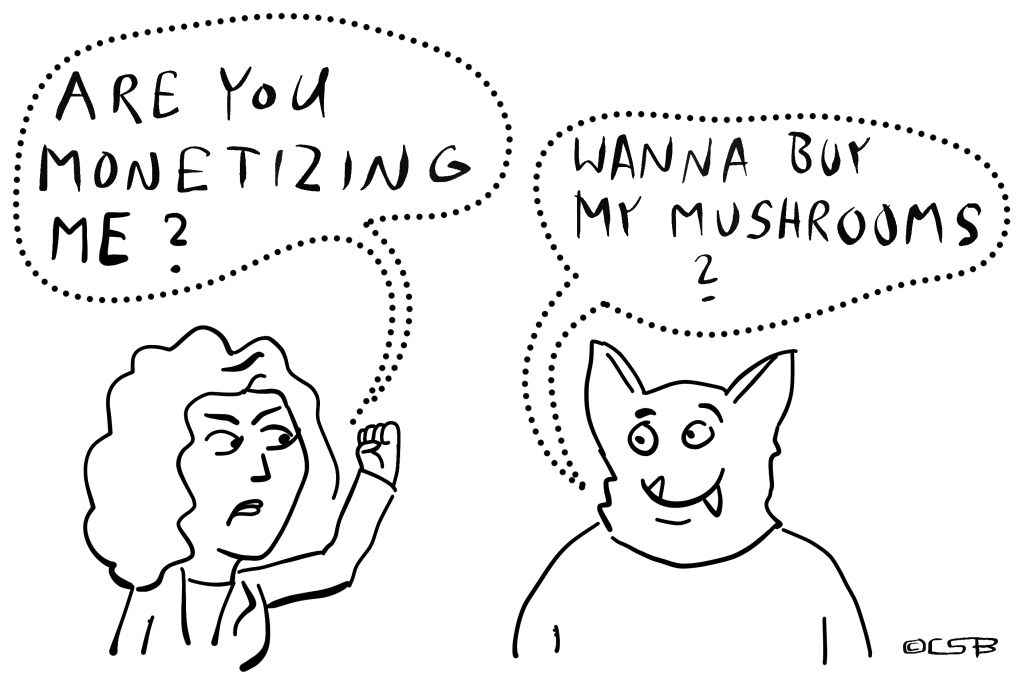 ARE YOU
MONETIZING
ME?
WANNA BUY
MY MUSHROOMS
?
©CSB